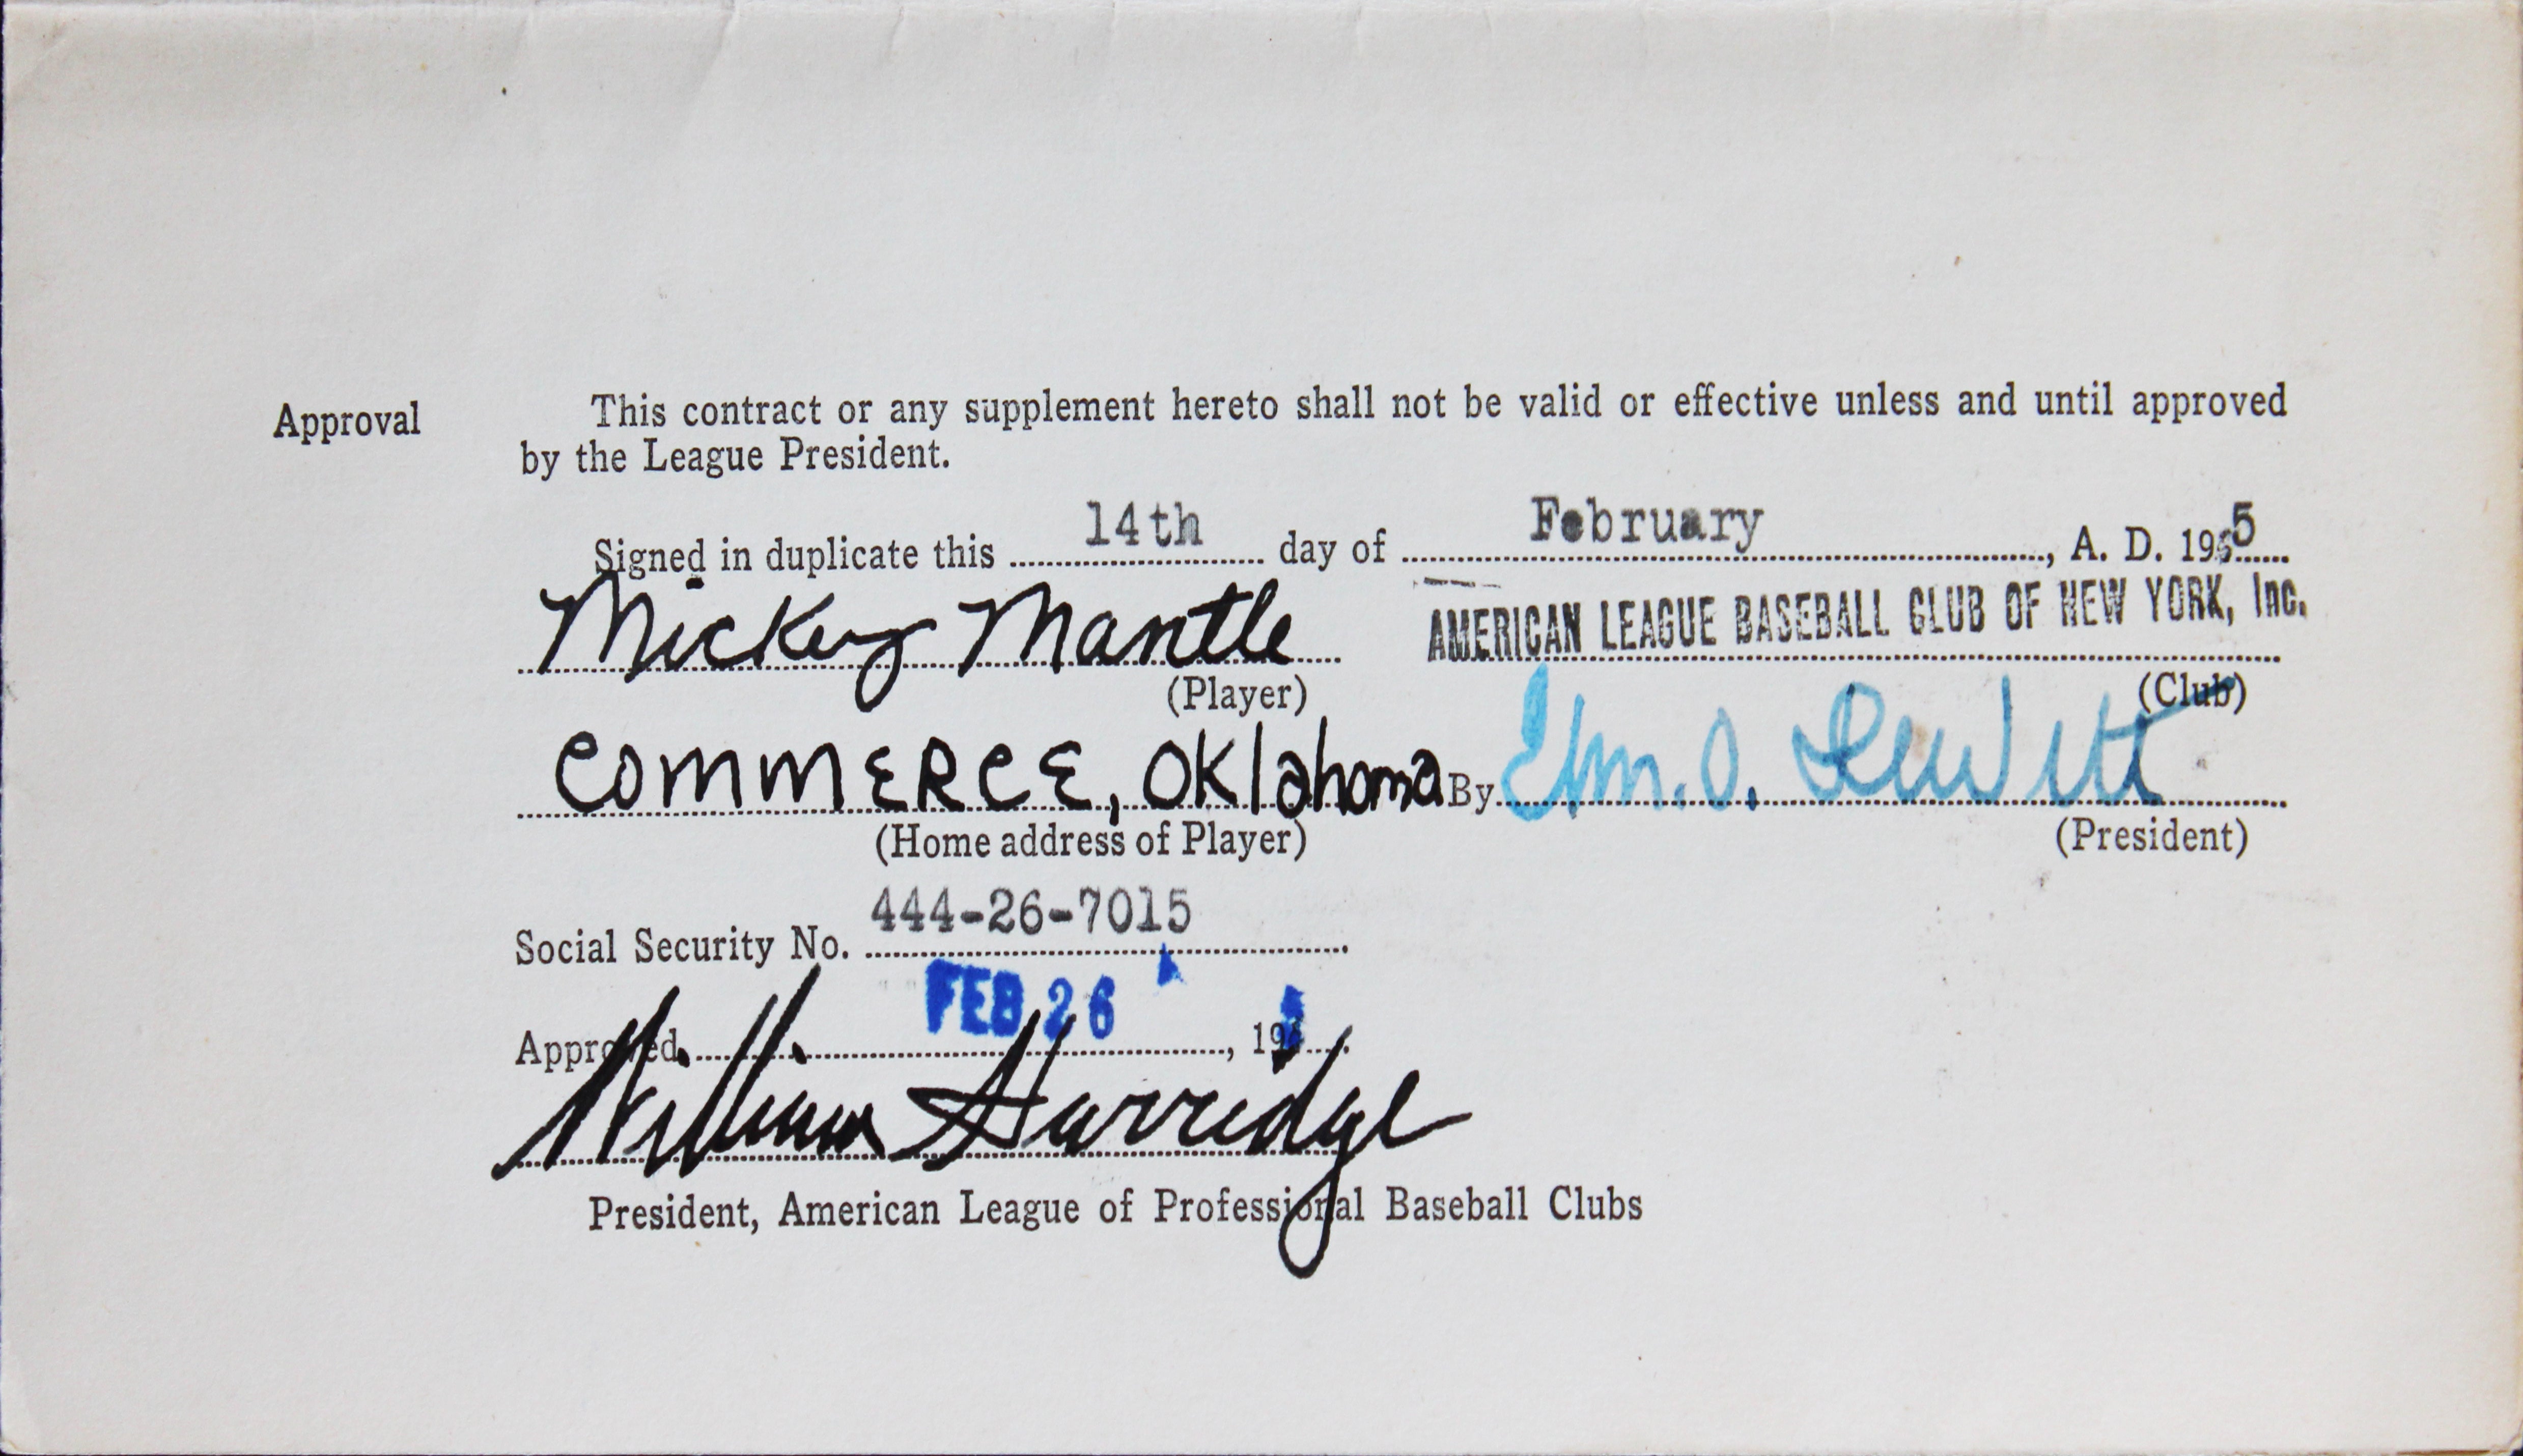 Approval
This contract or any supplement hereto shall not be valid or effective unless and until approved
by the League President.
Signed in duplicate this 14th day of February, A. D. 1955
Mickey Mantle AMERICAN LEAGUE BASEBALL CLUB OF NEW YORK, Inc.
(Player) (Club)
COMMERCE, OKlahoma By Wm. O. DeWitt
(Home address of Player) (President)
Social Security No. 444-26-7015
Approved FEB 26, 195
William Harridge
President, American League of Professional Baseball Clubs